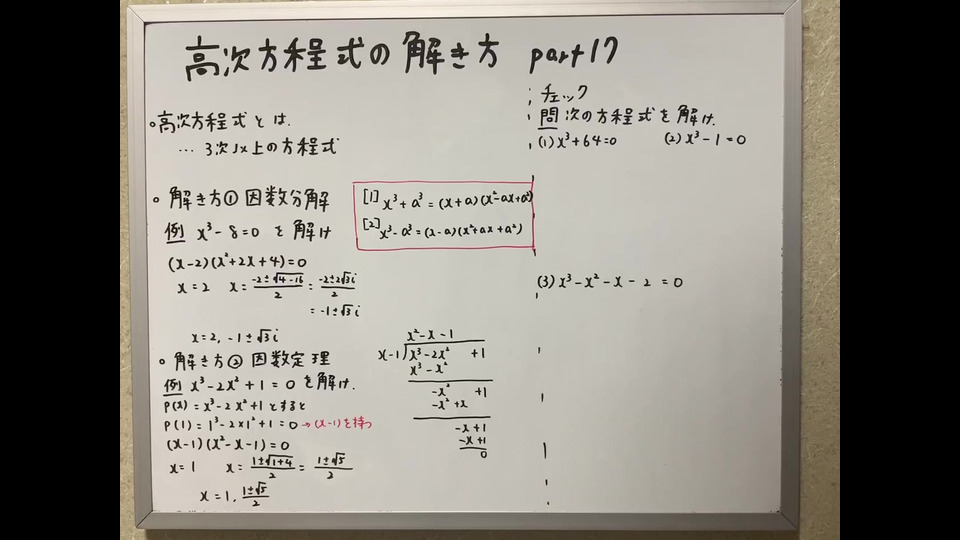 高次方程式の解き方 part17
。高次方程式とは.
… 3次以上の方程式
。解き方① 因数分解
例 x³-8=0 を解け
(x-2)(x²+2x+4)=0
x=2 x=\frac{-2±√4-16}{2}=\frac{-2±2√3i}{2}
=-1±√3i
x=2, -1±√3i
[1] x³+a³=(x+a)(x²-ax+a²)
[2] x³-a³=(x-a)(x²+ax+a²)
。解き方② 因数定理
例 x³-2x²+1=0 を解け.
P(x)=x³-2x²+1とすると
P(1)=1³-2×1²+1=0 →(x-1)を持つ
(x-1)(x²-x-1)=0
x=1 x=\frac{1±√1+4}{2}=\frac{1±√5}{2}
x=1, \frac{1±√5}{2}
x²-x-1
x-1)x³-2x² +1
x³-x²
-x² +1
-x²+x
-x+1
-x+1
0
チェック
問 次の方程式を解け.
(1) x³+64=0 (2) x³-1=0
(3) x³-x²-x-2=0